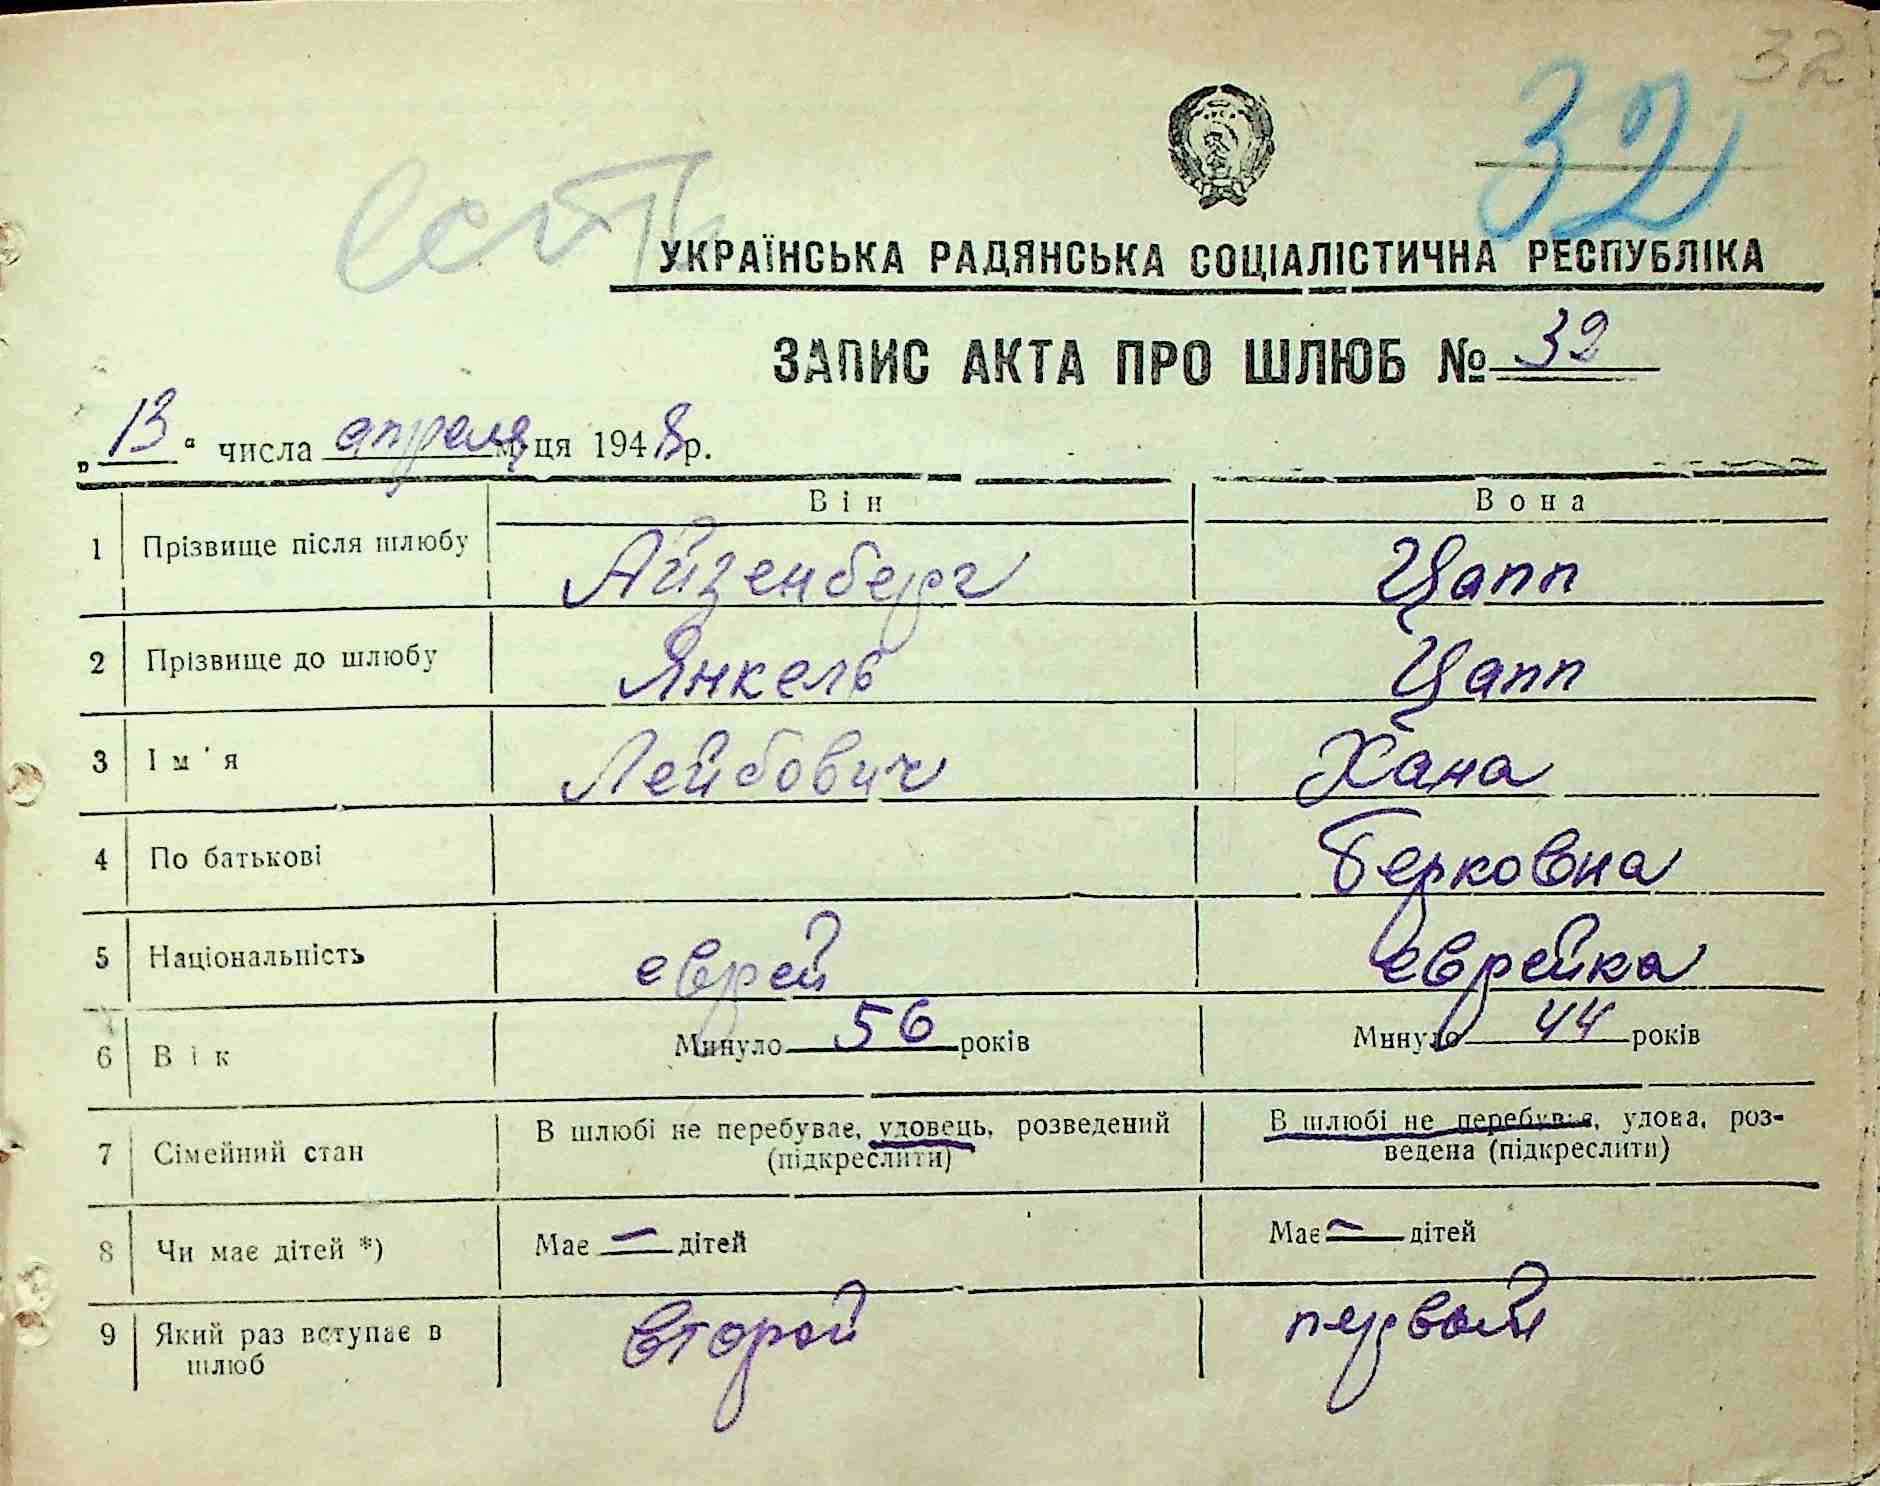 32
32
есть
УКРАЇНСЬКА РАДЯНСЬКА СОЦІАЛІСТИЧНА РЕСПУБЛІКА
ЗАПИС АКТА ПРО ШЛЮБ № 32
„13“ числа апреля м-ця 1948 р.
Він Вона
1 Прізвище після шлюбу Айзенберг Цапп
2 Прізвище до шлюбу Янкель Цапп
3 Ім'я Лейбович Хана
4 По батькові Берковна
5 Національність еврей еврейка
6 Вік Минуло 56 років Минуло 44 років
7 Сімейний стан В шлюбі не перебуває, удовець, розведений (підкреслити) В шлюбі не перебуває, удова, роз-
ведена (підкреслити)
8 Чи має дітей *) Має — дітей Має — дітей
9 Який раз вступає в шлюб второй первый